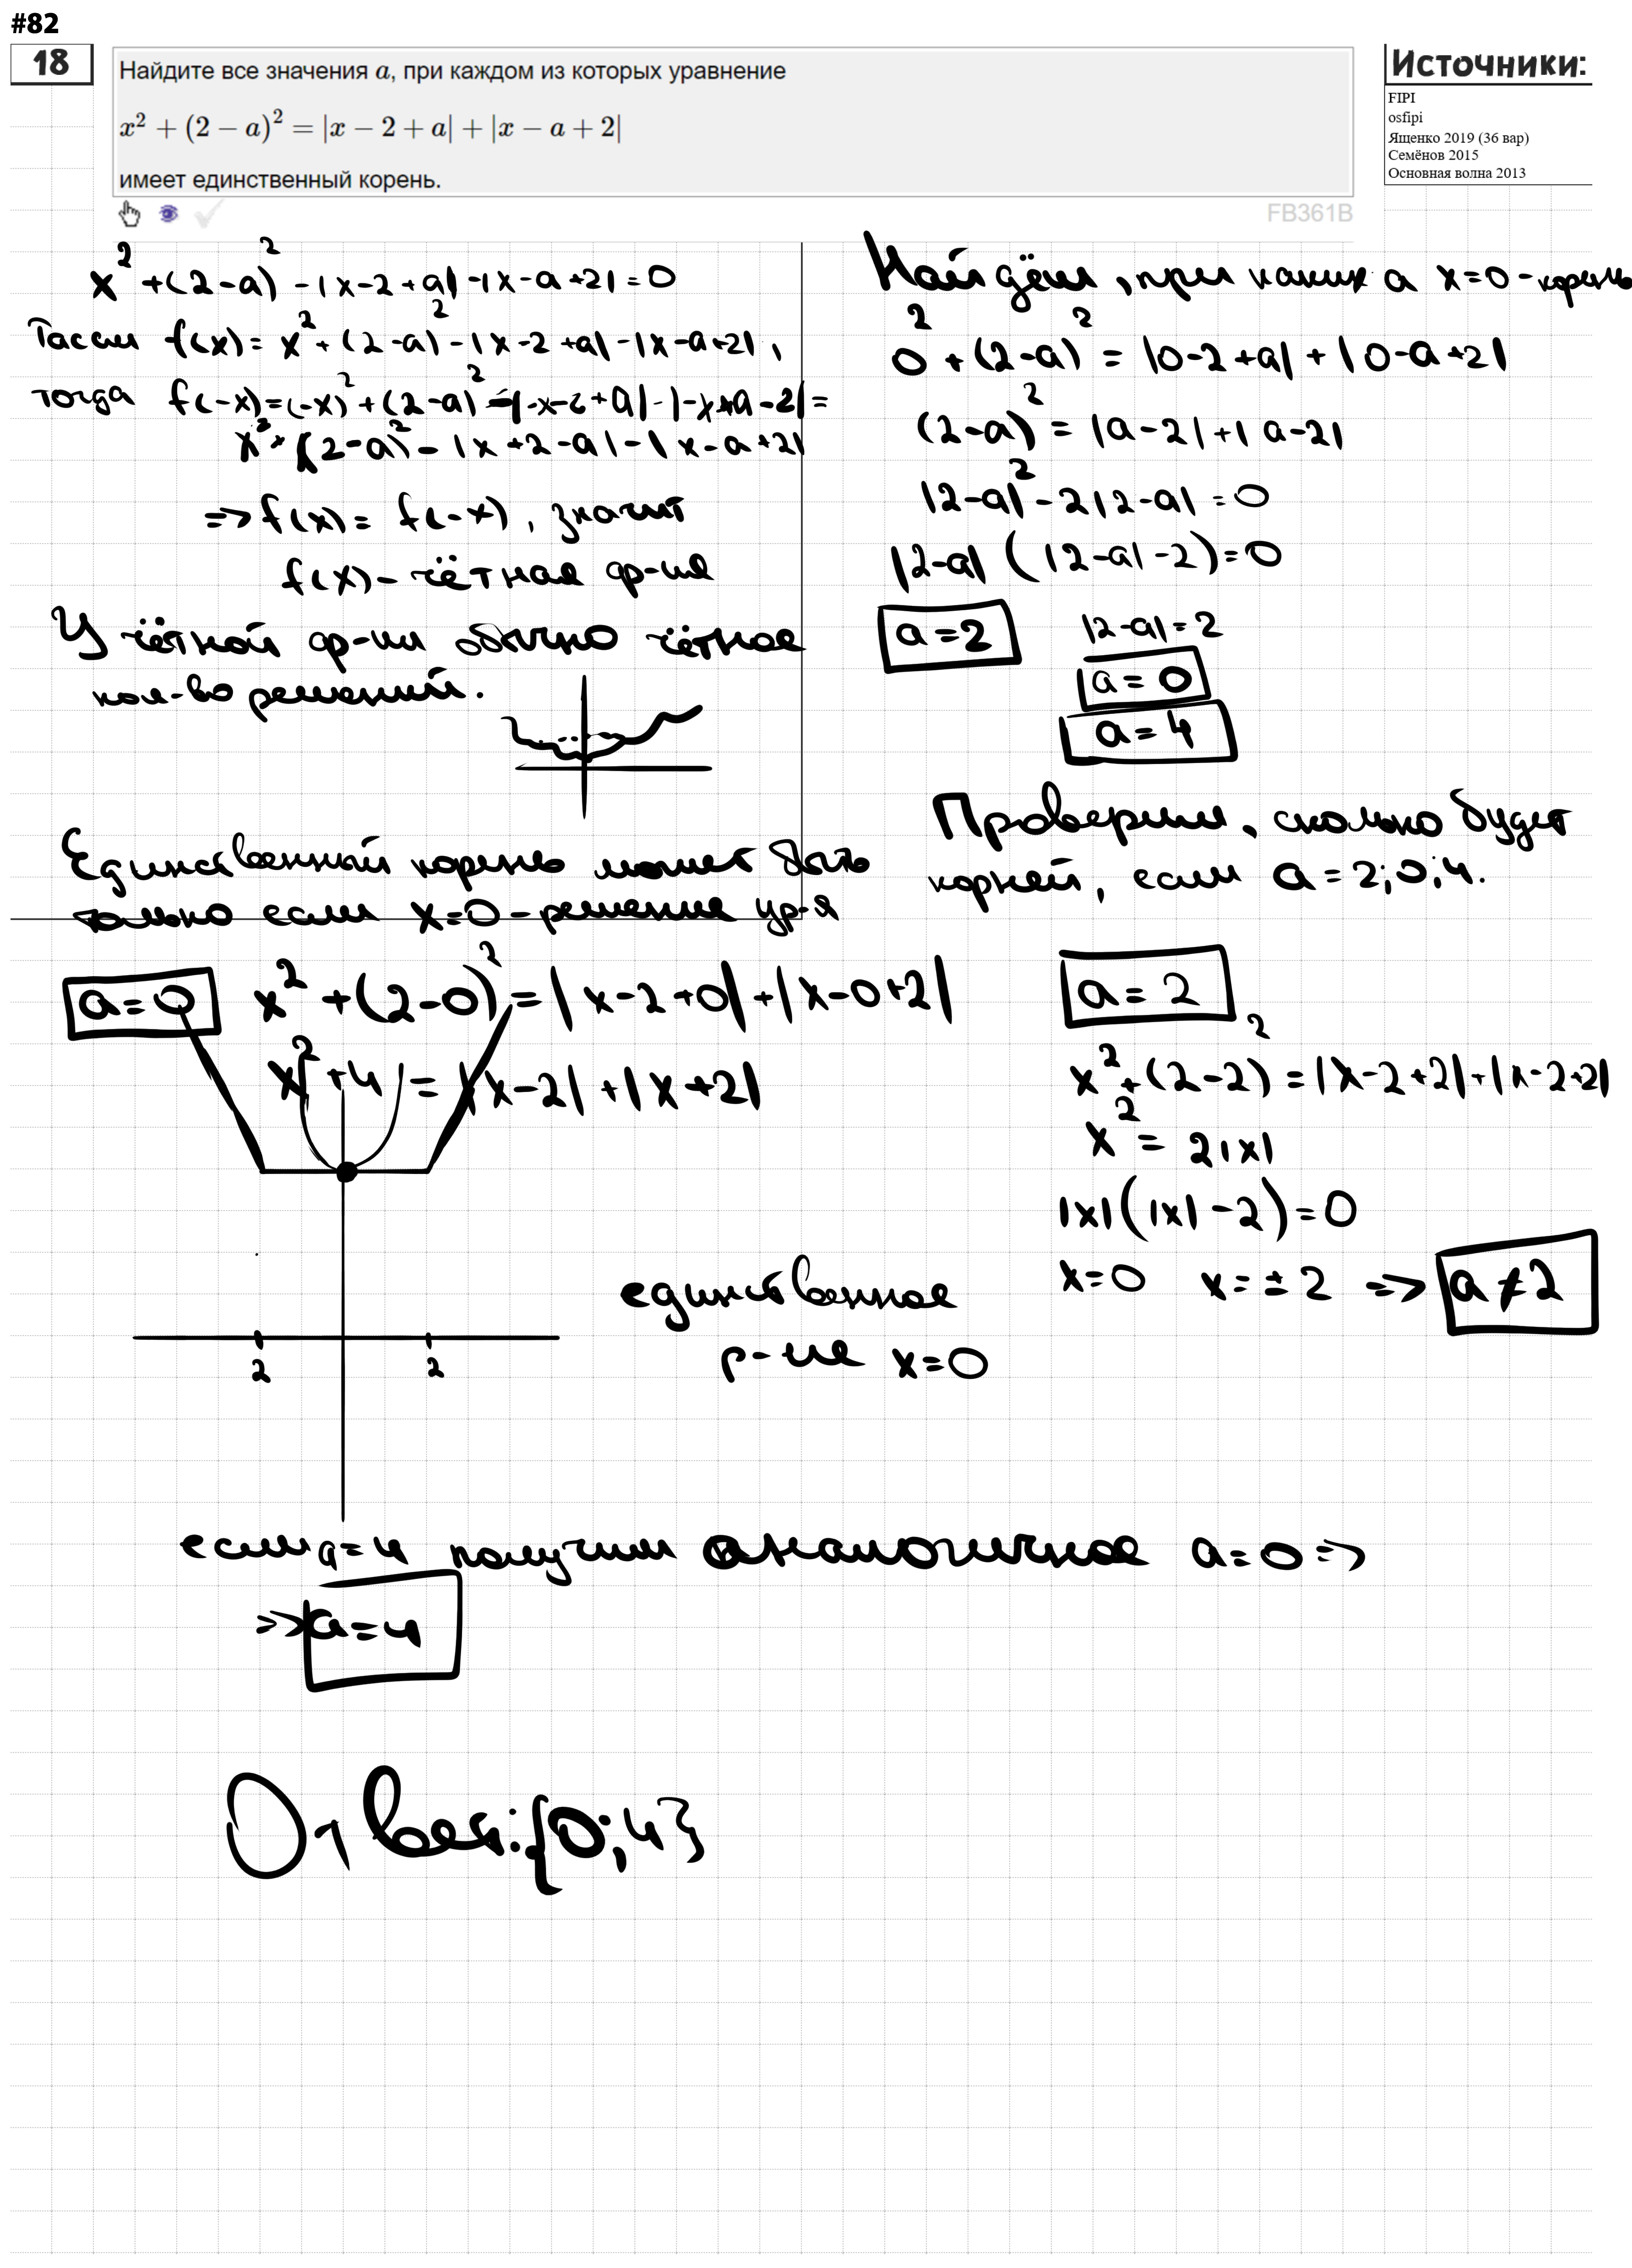 #82
18
Найдите все значения a, при каждом из которых уравнение
x² + (2 − a)² = |x − 2 + a| + |x − a + 2|
имеет единственный корень.
FB361B
Источники:
FIPI
osfipi
Ященко 2019 (36 вар)
Семёнов 2015
Основная волна 2013
x² + (2-a)² - |x-2+a| - |x-a+2| = 0
f(x) = x² + (2-a)² - |x-2+a| - |x-a+2|,
тогда f(-x) = (-x)² + (2-a)² - |-x-2+a| - |-x+a-2| =
x² + (2-a)² - |x+2-a| - |x-a+2|
=> f(x) = f(-x), значит
f(x) - чётная ф-ция
У чётной ф-ии обычно чётное
кол-во решений.
Единственный корень может быть
только если x=0 - решение ур-я
Найдём, при каких a x=0 - корень
0² + (2-a)² = |0-2+a| + |0-a+2|
(2-a)² = |a-2| + |a-2|
|2-a|² - 2|2-a| = 0
|2-a| (|2-a| - 2) = 0
a=2
|2-a| = 2
a = 0
a = 4
Проверим, сколько будет
корней, если a = 2; 0; 4.
a = 2
x² + (2-2)² = |x-2+2| + |x-2+2|
x² = 2|x|
|x| (|x| - 2) = 0
x=0 x = ±2 => a ≠ 2
a = 0 x² + (2-0)² = |x-2+0| + |x-0+2|
x² + 4 = |x-2| + |x+2|
2 2
единственное
р-ие x=0
если a=4 получим аналогичное a=0 =>
=> a=4
Ответ: {0; 4}